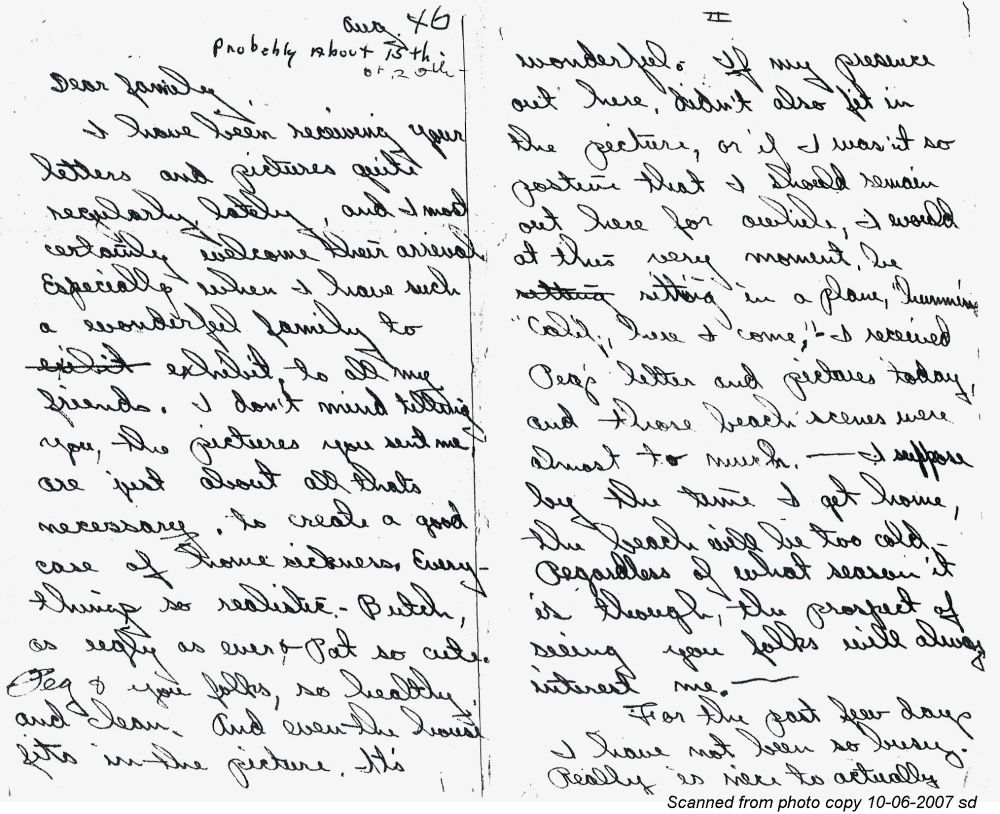 Aug. 46
Probebly About 15th.
or 20th-
Dear family,
I have been receiving your
letters and pictures quite
regularly, lately, and I most
certainly welcome their arrival
Especially when I have such
a wonderful family to
exhibit, to all my
friends. I don't mind telling
you, the pictures you sent me
are just about all thats
necessary, to create a good
case of home sickness. Every-
things so realistic.- Butch,
as ugly as ever & Pat so cute.
Peg & you folks, so healthy
and clean. And even the house
fits in the picture. It's
II
wonderful. If my presence
out here, didn't also fit in
the picture, or if I was'nt so
positive that I should remain
out here for awhile, I would
at this very moment, be
setting sitting in a plane, "hummin
"Calif., here I come," - I received
Peg's letter and pictures today,
and those beach scenes were
almost to much. — I suppose
by the time I get home,
the beach will be too cold.-
Regardless of what season it
is though, the prospect of
seeing you folks will always
interest me. —
For the past few days
I have not been so busy.
Really is nice to actually
Scanned from photo copy 10-06-2007 sd